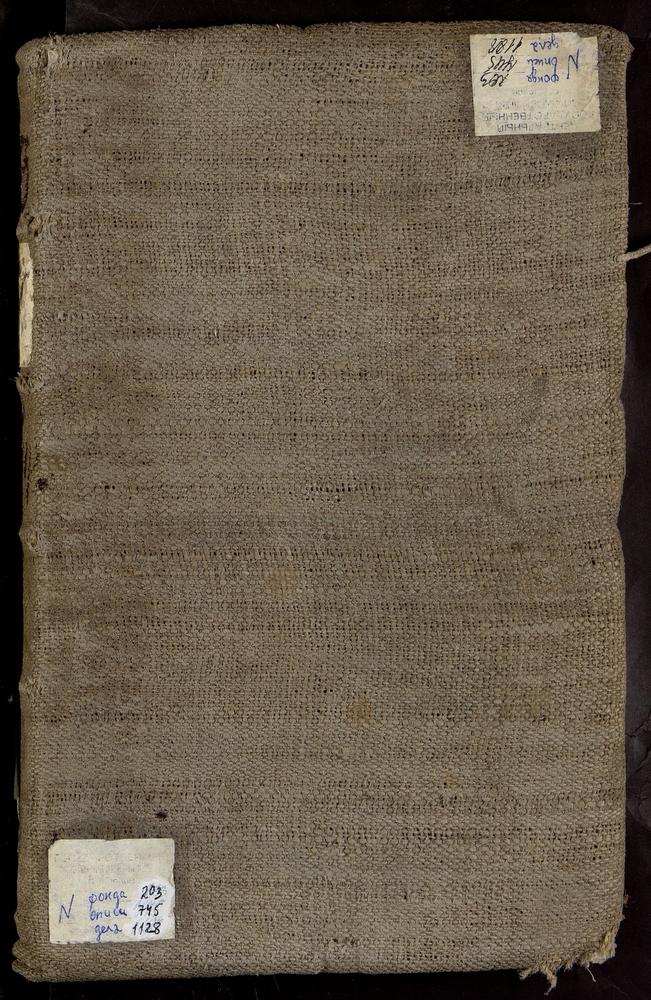 N фонда 203
описи 745
дела 1128
N фонда 203
описи 745
дела 1128